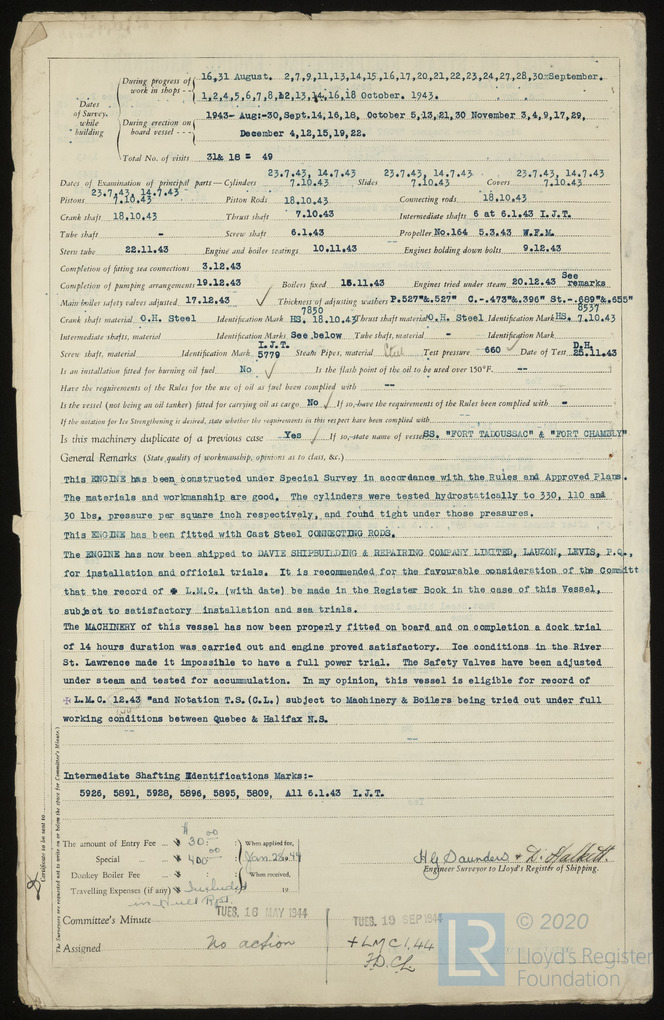 Dates of Survey while building
During progress of work in shops - - 16,31 August. 2,7,9,11,13,14,15,16,17,20,21,22,23,24,27,28,30 September.
1,2,4,5,6,7,8,12,13,14,16,18 October. 1943.
During erection on board vessel - - - 1943- Aug:-30, Sept.14,16,18, October 5,13,21,30 November 3,4,9,17,29,
December 4,12,15,19,22.
Total No. of visits 31& 18 = 49
23.7.43, 14.7.43 23.7.43, 14.7.43 23.7.43, 14.7.43
Dates of Examination of principal parts—Cylinders 7.10.43 Slides 7.10.43 Covers 7.10.43
23.7.43, 14.7.43
Pistons 7.10.43 Piston Rods 18.10.43 Connecting rods 18.10.43
Crank shaft 18.10.43 Thrust shaft 7.10.43 Intermediate shafts 6 at 6.1.43 I.J.T.
Tube shaft - Screw shaft 6.1.43 Propeller No.164 5.3.43 W.F.M.
Stern tube 22.11.43 Engine and boiler seatings 10.11.43 Engines holding down bolts 9.12.43
Completion of fitting sea connections 3.12.43
Completion of pumping arrangements 19.12.43 Boilers fixed 18.11.43 Engines tried under steam 20.12.43 See remarks
Main boiler safety valves adjusted 17.12.43 ✓ Thickness of adjusting washers P.527"&.527" C.-.473"&.396" St.-.689"&.655"
7850 8537
Crank shaft material O.H. Steel Identification Mark HS. 18.10.43 Thrust shaft material O.H. Steel Identification Mark HS. 7.10.43
Intermediate shafts, material Identification Marks See below Tube shaft, material - Identification Mark
I.J.T. D.H.
Screw shaft, material Identification Mark 5779 Steam Pipes, material Steel Test pressure 660 ✓ Date of Test 25.11.43
Is an installation fitted for burning oil fuel No ✓ Is the flash point of the oil to be used over 150°F. --
Have the requirements of the Rules for the use of oil as fuel been complied with --
Is the vessel (not being an oil tanker) fitted for carrying oil as cargo No ✓ If so, have the requirements of the Rules been complied with -
If the notation for Ice Strengthening is desired, state whether the requirements in this respect have been complied with
Is this machinery duplicate of a previous case Yes ✓ If so, state name of vessel SS. "FORT TADOUSSAC" & "FORT CHAMBLY"
General Remarks (State quality of workmanship, opinions as to class, &c.)
This ENGINE has been constructed under Special Survey in accordance with the Rules and Approved Plans.
The materials and workmanship are good. The cylinders were tested hydrostatically to 330, 110 and
30 lbs. pressure per square inch respectively, and found tight under those pressures.
This ENGINE has been fitted with Cast Steel CONNECTING RODS.
The ENGINE has now been shipped to DAVIE SHIPBUILDING & REPAIRING COMPANY LIMITED, LAUZON, LEVIS, P.Q.,
for installation and official trials. It is recommended for the favourable consideration of the Committ
that the record of ✠ L.M.C. (with date) be made in the Register Book in the case of this Vessel,
subject to satisfactory installation and sea trials.
The MACHINERY of this vessel has now been properly fitted on board and on completion a dock trial
of 14 hours duration was carried out and engine proved satisfactory. Ice conditions in the River
St. Lawrence made it impossible to have a full power trial. The Safety Valves have been adjusted
under steam and tested for accummulation. In my opinion, this vessel is eligible for record of
✠ L.M.C. 12.43 "and Notation T.S.(C.L.) subject to Machinery & Boilers being tried out under full
working conditions between Quebec & Halifax N.S.
--
Intermediate Shafting Identifications Marks:-
5926, 5891, 5928, 5896, 5895, 5809, All 6.1.43 I.J.T.
Certificate to be sent to
The Surveyors are requested not to write on or below the space for Committee's Minute.
The amount of Entry Fee ... $ 30.00 When applied for,
Special ... 400.00 Jan. 28. 1944
Donkey Boiler Fee When received,
Travelling Expenses (if any) Included 19
in Hull Rpt.
H G Saunders & D. Halkett.
Engineer Surveyor to Lloyd's Register of Shipping.
Committee's Minute TUES. 16 MAY 1944 TUES. 19 SEP 1944
Assigned No action + LMC 1.44
T.D. CL
© 2020
LR
Lloyd's Register
Foundation